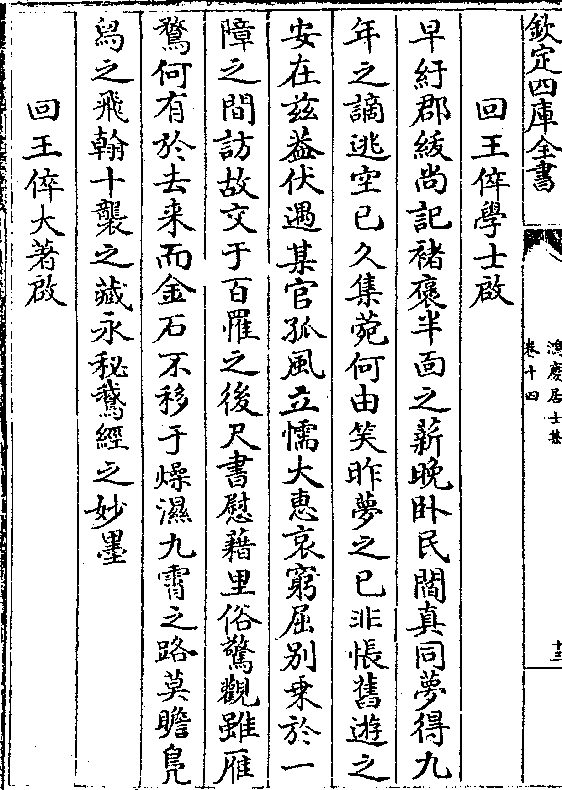 欽定四庫全書
鴻慶居士集
卷十四
十三
回王倅學士啟
早紆郡紱尚記褚褒半面之薪晚卧民閭真同夢得九
年之謫逃空已久集菀何由笑昨夢之已非悵舊遊之
安在兹葢伏遇某官孤風立懦大惠哀窮屈别乗於一
障之間訪故交于百罹之後尺書慰藉里俗驚觀雖雁
鶩何有於去来而金石不移于燥濕九霄之路莫瞻鳬
舄之飛翰十襲之藏永秘鵞經之妙墨
回王倅大著啟